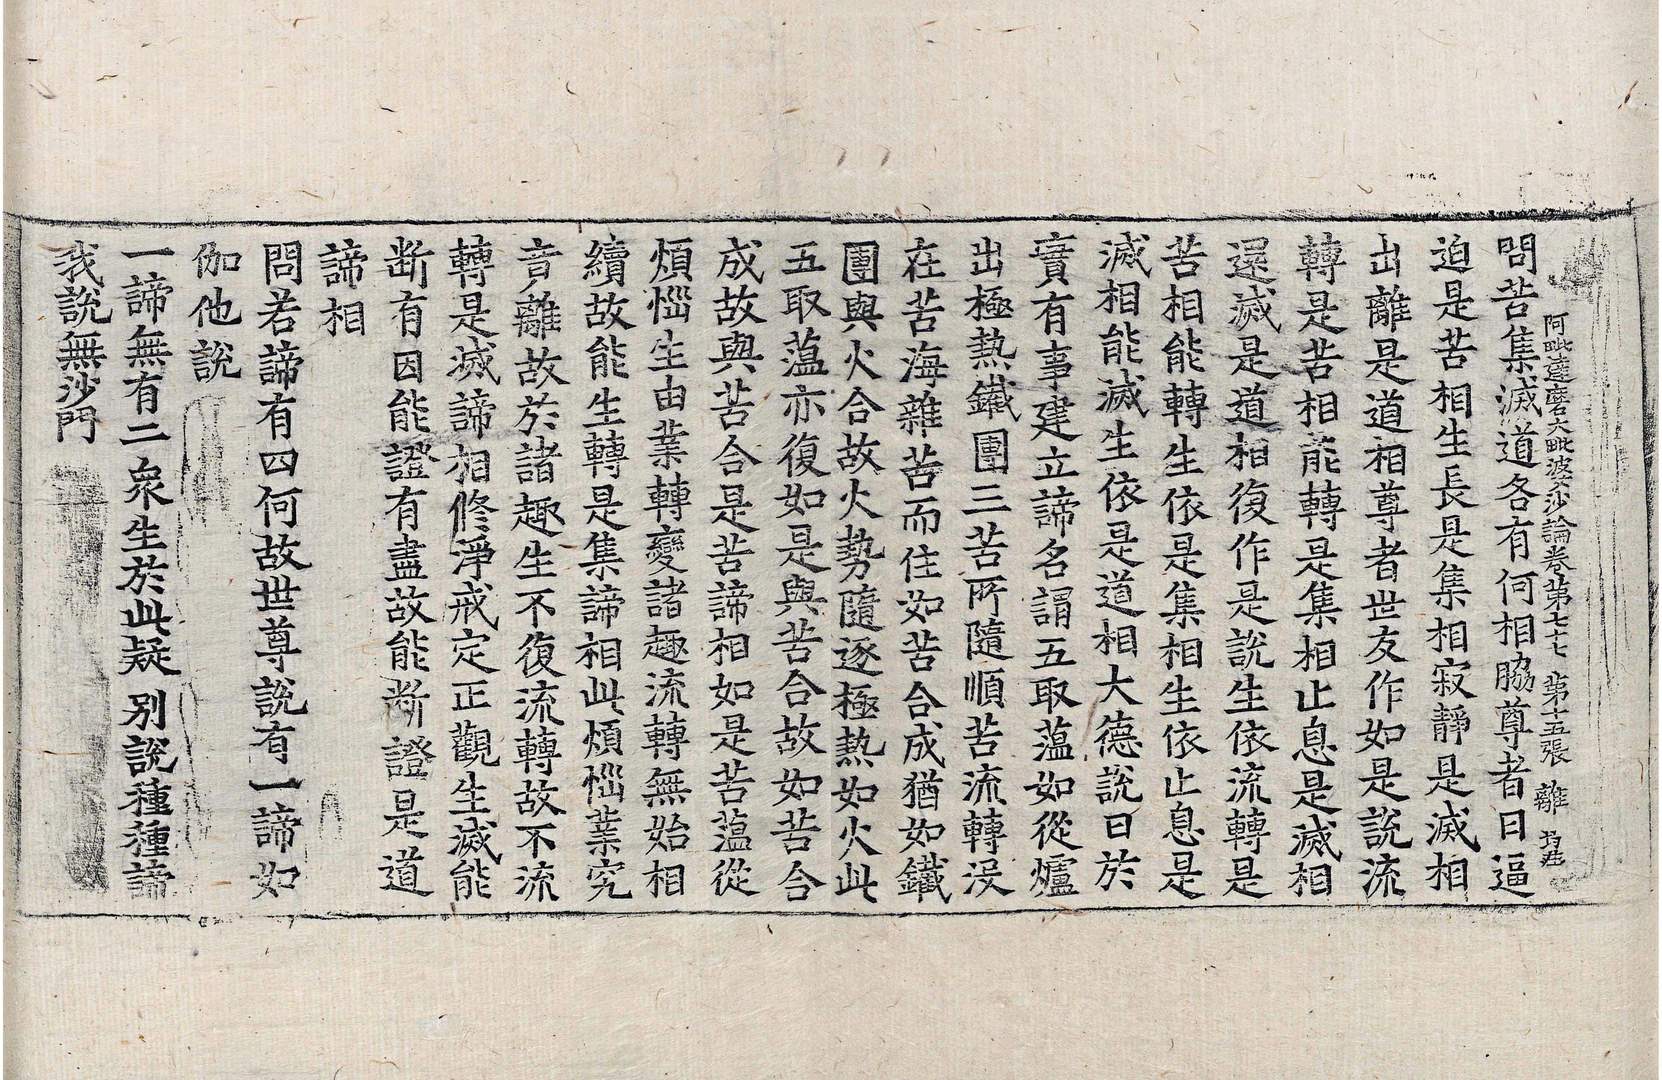 阿毗達磨大毗婆沙論卷第七十七 第十五張 離
問苦集滅道各有何相脇尊者曰逼
迫是苦相生長是集相寂靜是滅相
出離是道相尊者世友作如是說流
轉是苦相能轉是集相止息是滅相
還滅是道相復作是說生依流轉是
苦相能轉生依是集相生依止息是
滅相能滅生依是道相大德說曰於
實有事建立諦名謂五取蘊如從爐
出極熱鐵團三苦所隨順苦流轉沒
在苦海雜苦而住如苦合成猶如鐵
團與火合故火勢隨逐極熱如火此
五取蘊亦復如是與苦合故如苦合
成故與苦合是苦諦相如是苦蘊從
煩惱生由業轉變諸趣流轉無始相
續故能生轉是集諦相此煩惱業究
竟離故於諸趣生不復流轉故不流
轉是滅諦相修淨戒定正觀生滅能
斷有因能證有盡故能斷證是道
諦相
問若諦有四何故世尊說有一諦如
伽他說
一諦無有二 衆生於此疑 別說種種諦
我說無沙門